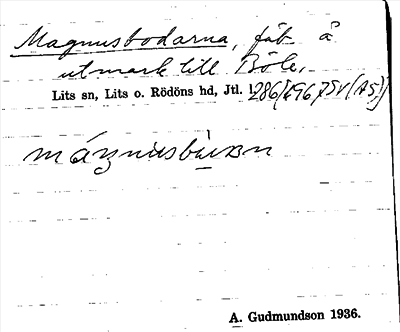 Magnusbodarna, fäb. å
utmark till Böle,
Lits sn, Lits o. Rödöns hd, Jtl.
mágnusbùᴚn
A. Gudmundson 1936.